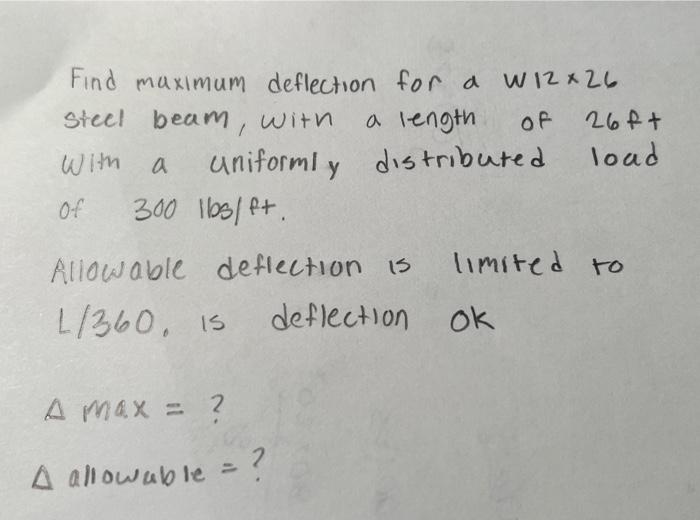 Find maximum deflection for a W12x26
steel beam, with a length of 26ft
With a uniformly distributed load
of 300 lbs/ft.
Allowable deflection is limited to
L/360. is deflection ok
Δ max = ?
Δ allowable = ?